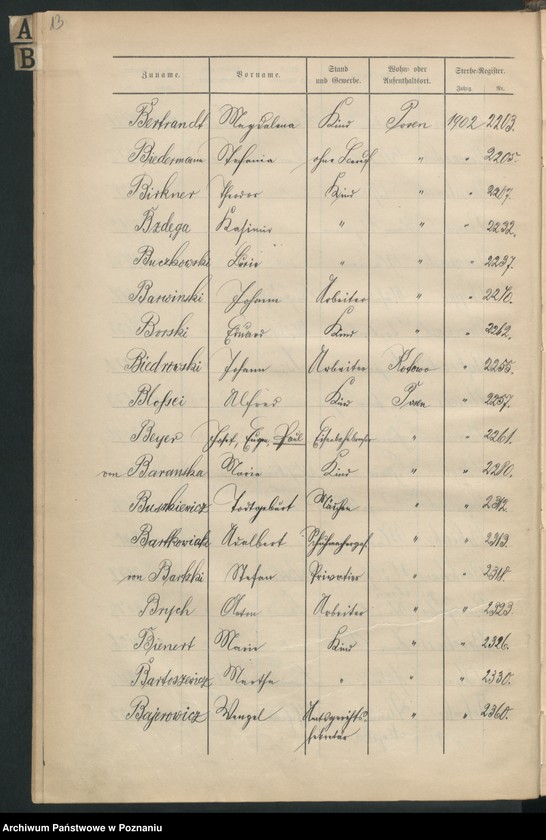 13
A
B
Zuname. Vorname. Stand und Gewerbe. Wohn- oder Aufenthaltsort. Sterbe-Register. Jahrg. Nr.
Bertrandt Magdalena Kind Posen 1902 2203.
Biedermann Stefania ohne Beruf " " 2205.
Birkner Theodor Kind " " 2217.
Bzdęga Kasimir " " " 2232.
Buczkowski " " " 2237.
Barwinski Johann Arbeiter " " 2240.
Borski Eduard Kind " "
Johann Arbeiter " 2255.
Alfred Kind Posen " 2257.
Beyer Josef, Eugen, Paul " " 2261.
von Baranska Marie Kind " " 2280.
Buszkiewicz Todtgeburt Mädchen " " 2312.
Bartkowiak Adalbert " " 2313.
von Stefan Privatier " " 2318.
Brych Anton Arbeiter " " 2323
Bienert Marie Kind " " 2326.
Bartoszewicz Martha " " " 2330.
Bajerowicz Wenzel Amtsgerichts " " 2360.
sekretär
Archiwum Państwowe w Poznaniu